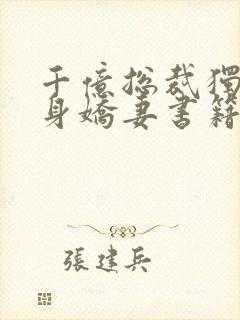 千億総裁獨
身嬌妻書籍
張建兵